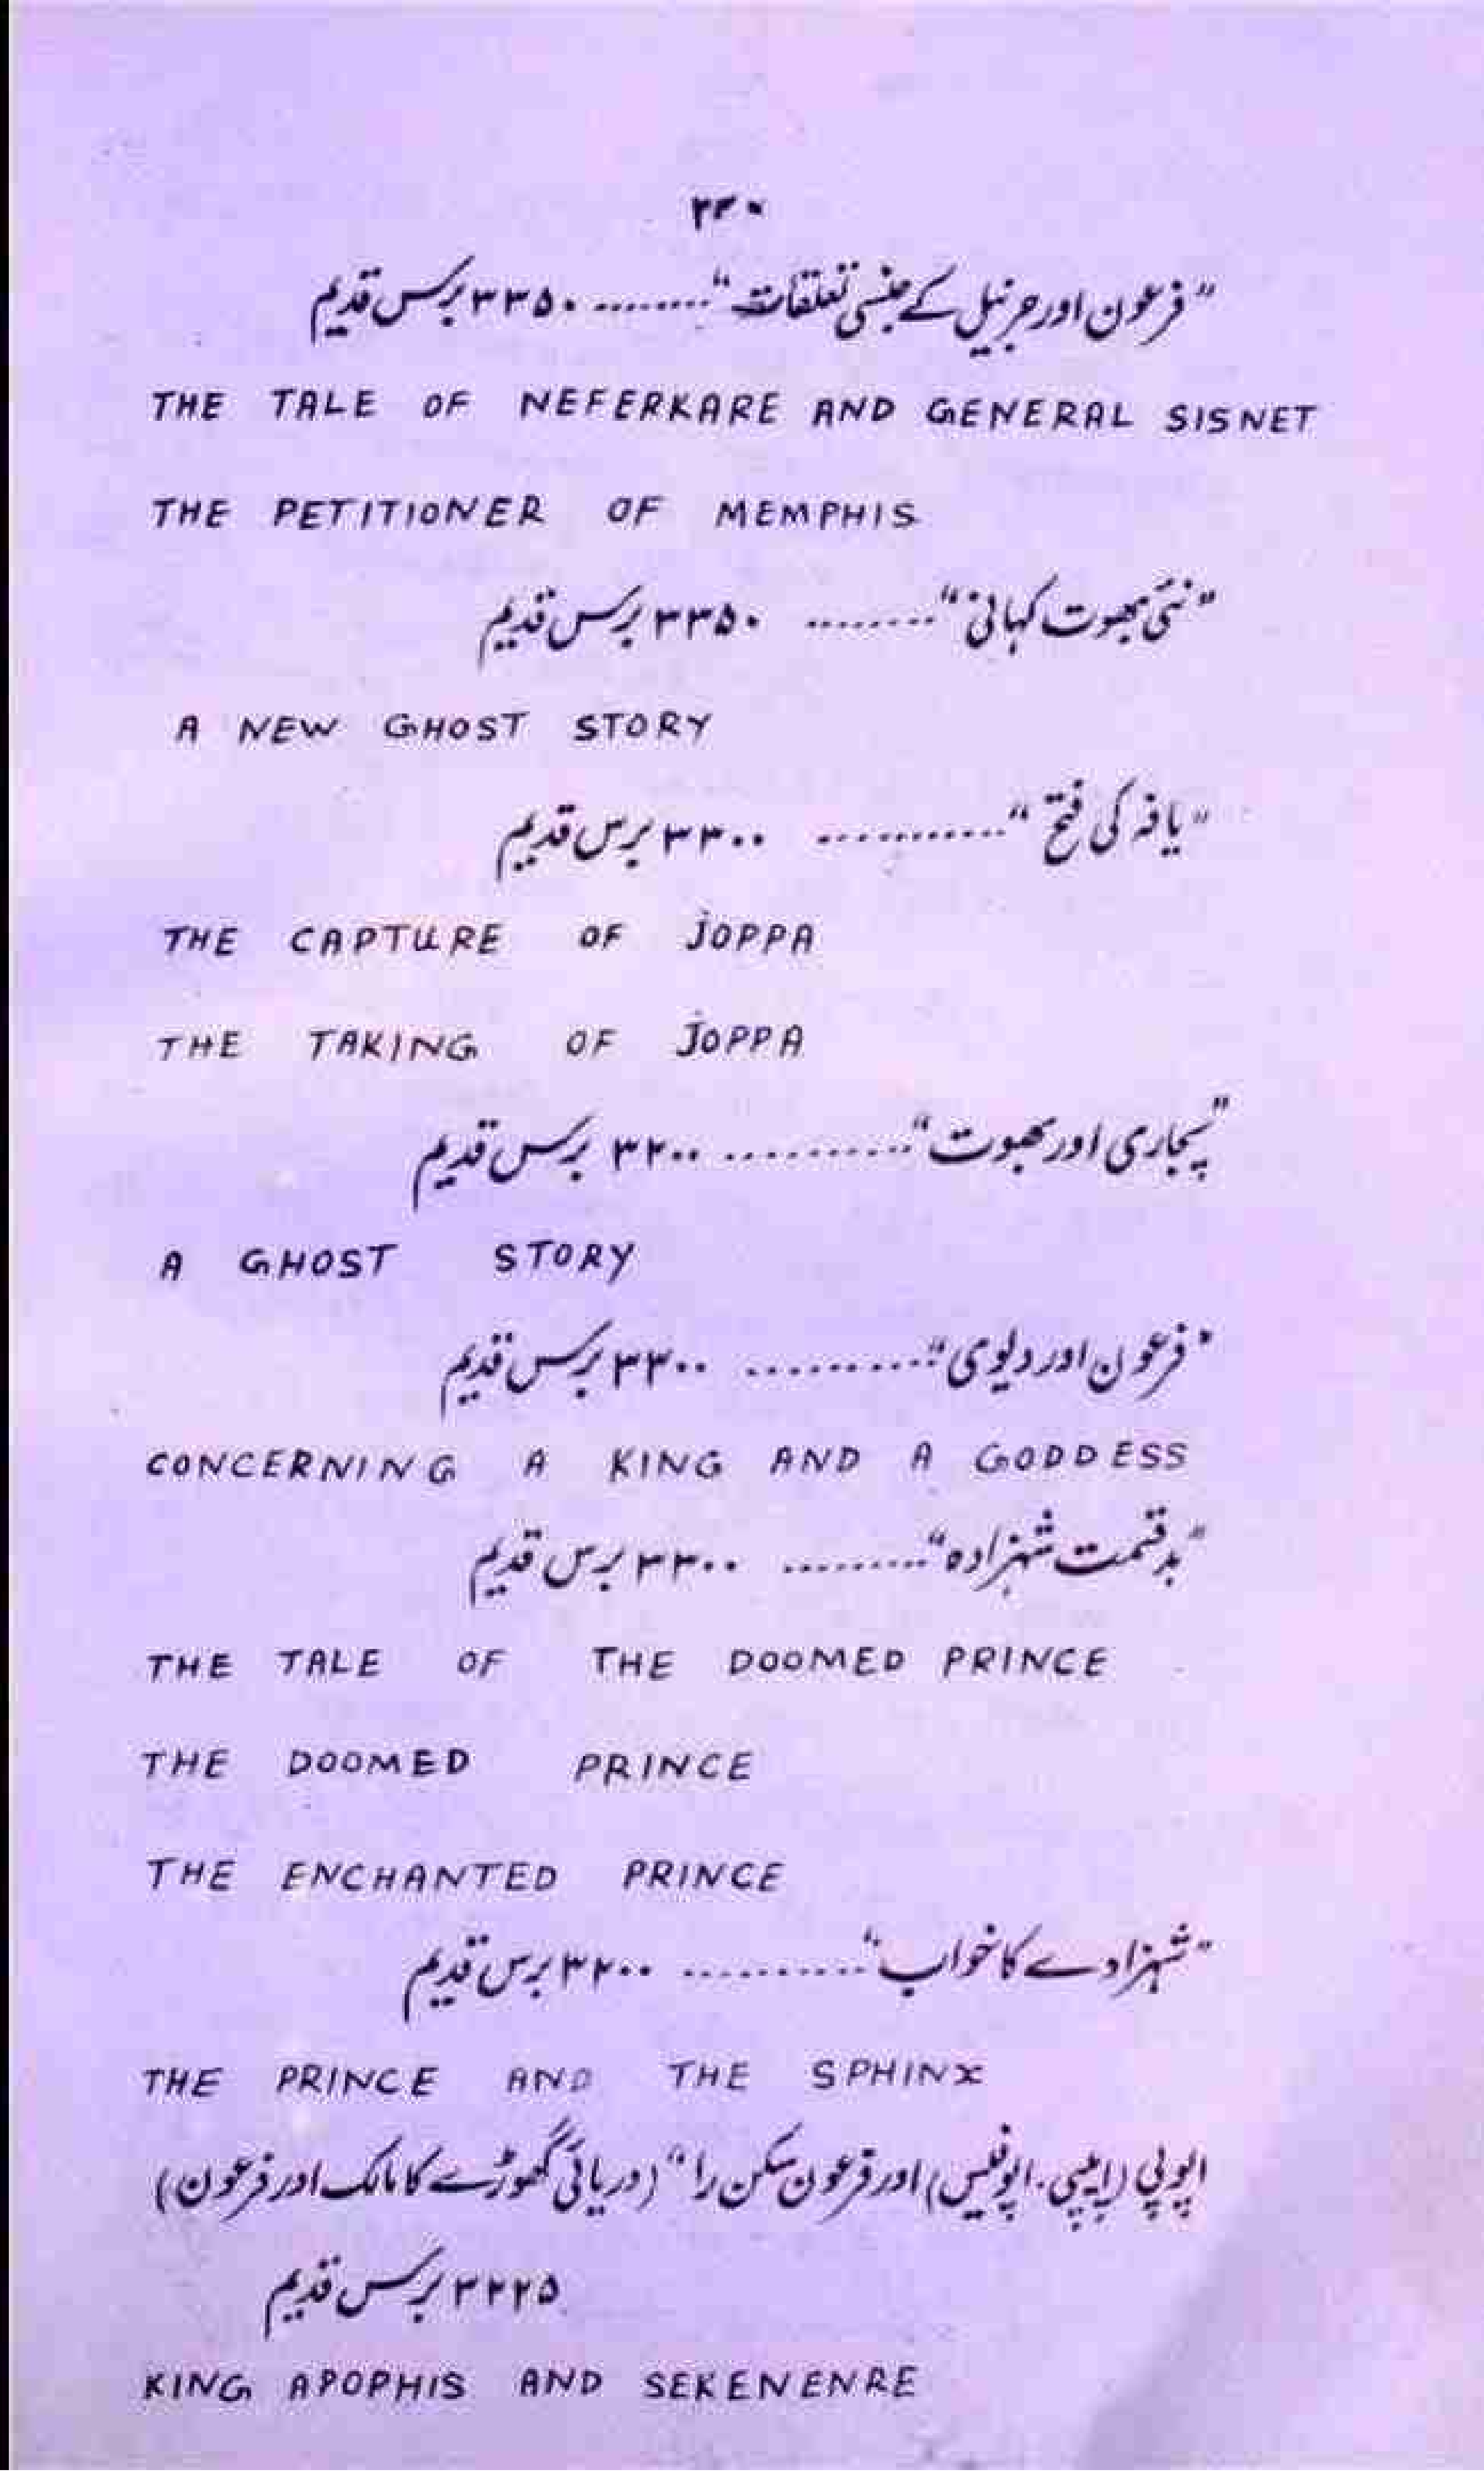 ۲۳۰
"فرعون اور جرنیل کے جنسی تعلقات" ......... ۳۳۵۰ برس قدیم
THE TALE OF NEFERKARE AND GENERAL SISNET
THE PETITIONER OF MEMPHIS
"نئی بھوت کہانی" ........ ۳۳۵۰ برس قدیم
A NEW GHOST STORY
"یافہ کی فتح" ............ ۳۳۰۰ برس قدیم
THE CAPTURE OF JOPPA
THE TAKING OF JOPPA
"پجاری اور بھوت" ........... ۳۲۰۰ برس قدیم
A GHOST STORY
"فرعون اور دیوی" ........... ۳۳۰۰ برس قدیم
CONCERNING A KING AND A GODDESS
"بدقسمت شہزادہ" ......... ۳۳۰۰ برس قدیم
THE TALE OF THE DOOMED PRINCE
THE DOOMED PRINCE
THE ENCHANTED PRINCE
"شہزادے کا خواب" ........... ۳۲۰۰ برس قدیم
THE PRINCE AND THE SPHINX
اپوپی (اپیپی۔ اپوفیس) اور فرعون سکن را" (دریائی گھوڑے کا مالک اور فرعون)
۳۲۲۵ برس قدیم
KING APOPHIS AND SEKENENRE